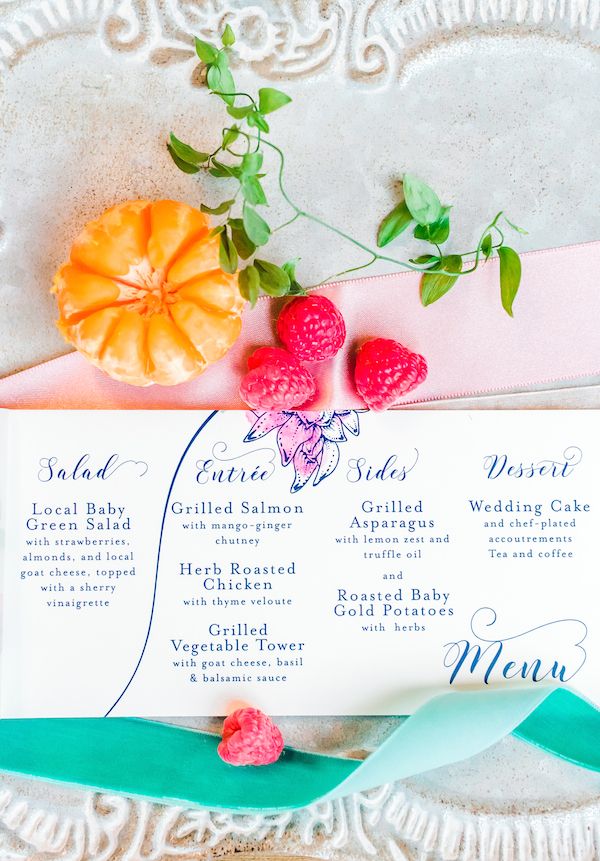 Salad
Local Baby
Green Salad
with strawberries,
almonds, and local
goat cheese, topped
with a sherry
vinaigrette
Entrée
Grilled Salmon
with mango-ginger
chutney
Herb Roasted
Chicken
with thyme veloute
Grilled
Vegetable Tower
with goat cheese, basil
& balsamic sauce
Sides
Grilled
Asparagus
with lemon zest and
truffle oil
and
Roasted Baby
Gold Potatoes
with herbs
Dessert
Wedding Cake
and chef-plated
accoutrements
Tea and coffee
Menu